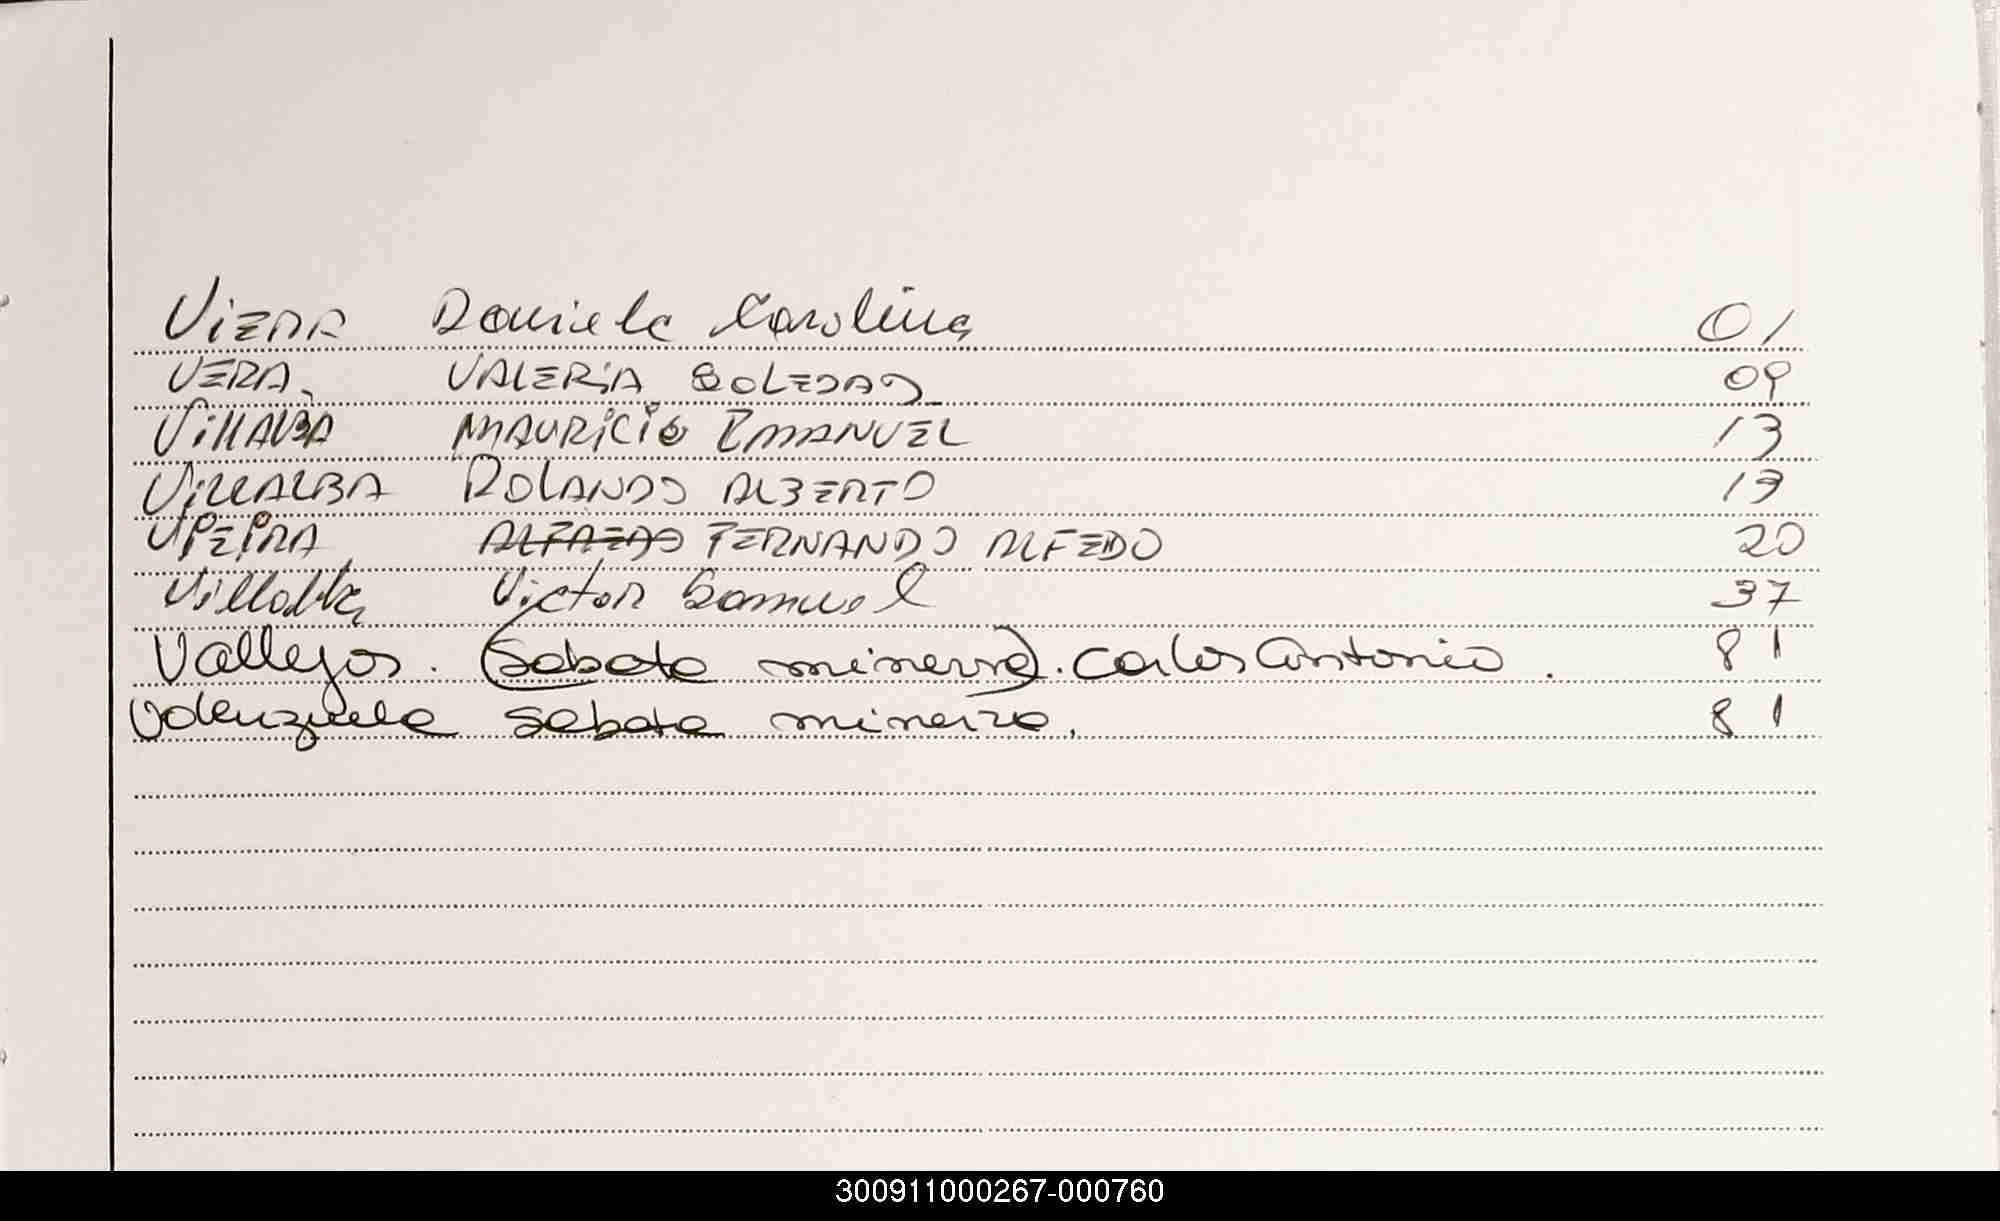 Viera Daniela Carolina 01
VERA. VALERIA SOLEDAD 09
VillALBA MAURICIO EMANUEL 13
VillALBA ROLANDO ALBERTO 19
ALFREDO FERNANDO ALFEDO 20
Villalba Victor Samuel 37
Vallejos. (Sabata minerva). Carlos Antonio. 81
Valenzuela Sabata minerva. 81
300911000267-000760